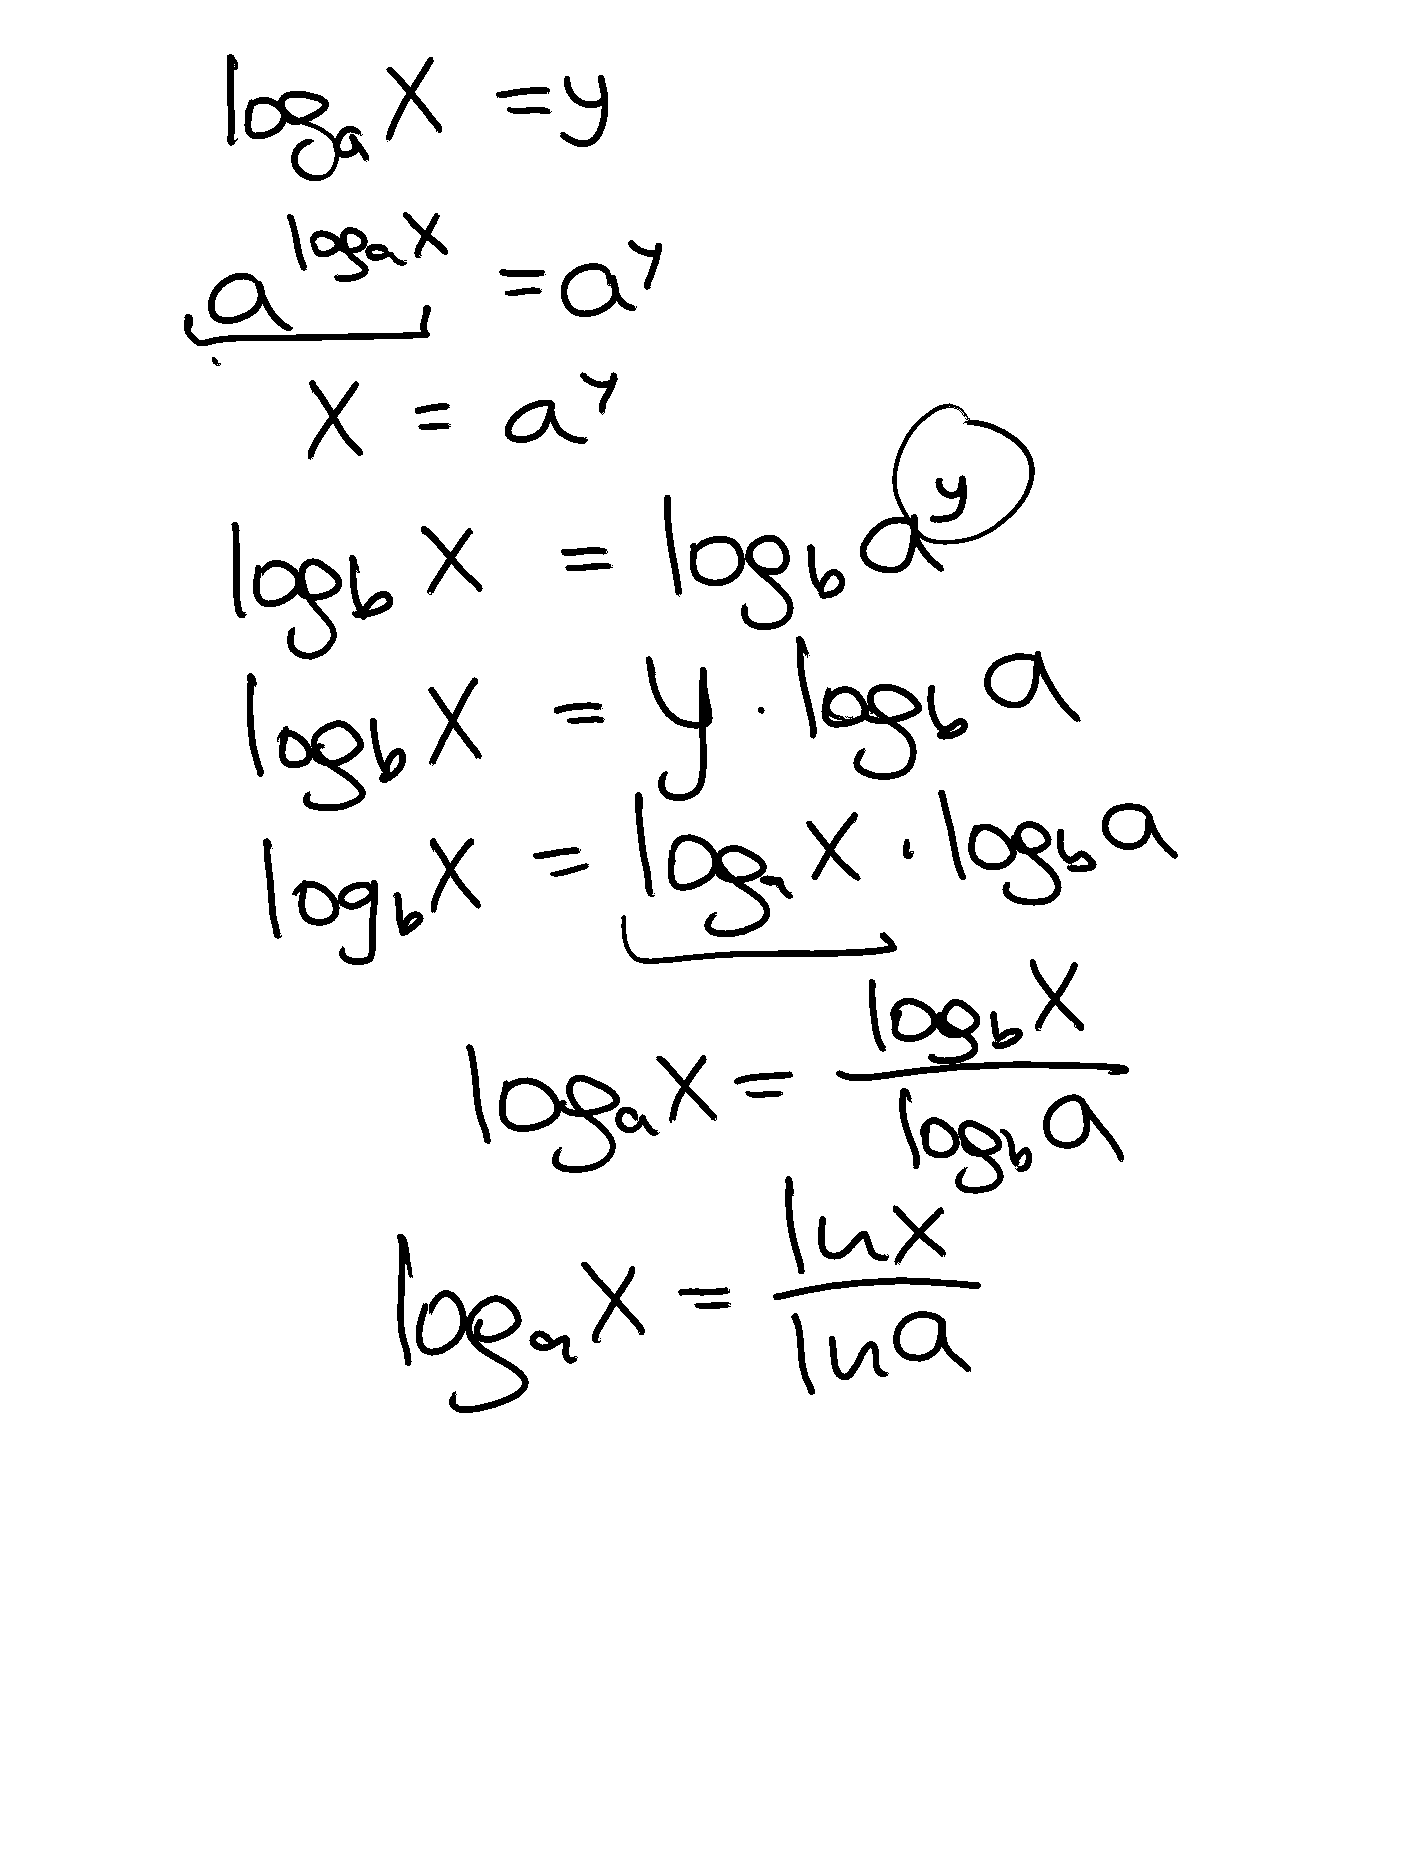 logₐ x = y
a^(logₐ x) = a^y
x = a^y
log_b x = log_b a^y
log_b x = y · log_b a
log_b x = logₐ x · log_b a
logₐ x = (log_b x)/(log_b a)
logₐ x = (ln x)/(ln a)